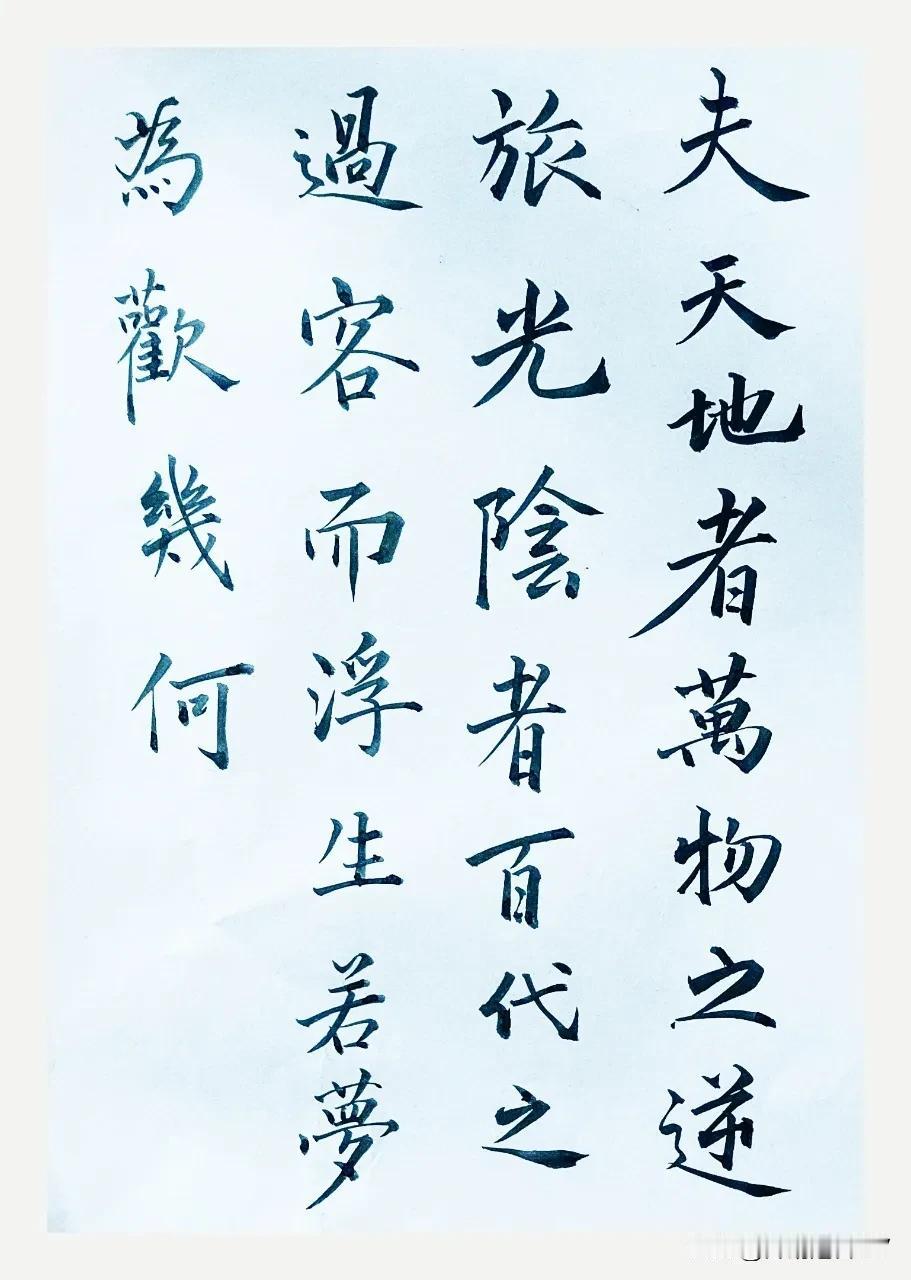 夫天地者萬物之逆
旅光陰者百代之
過客而浮生若夢
為歡幾何